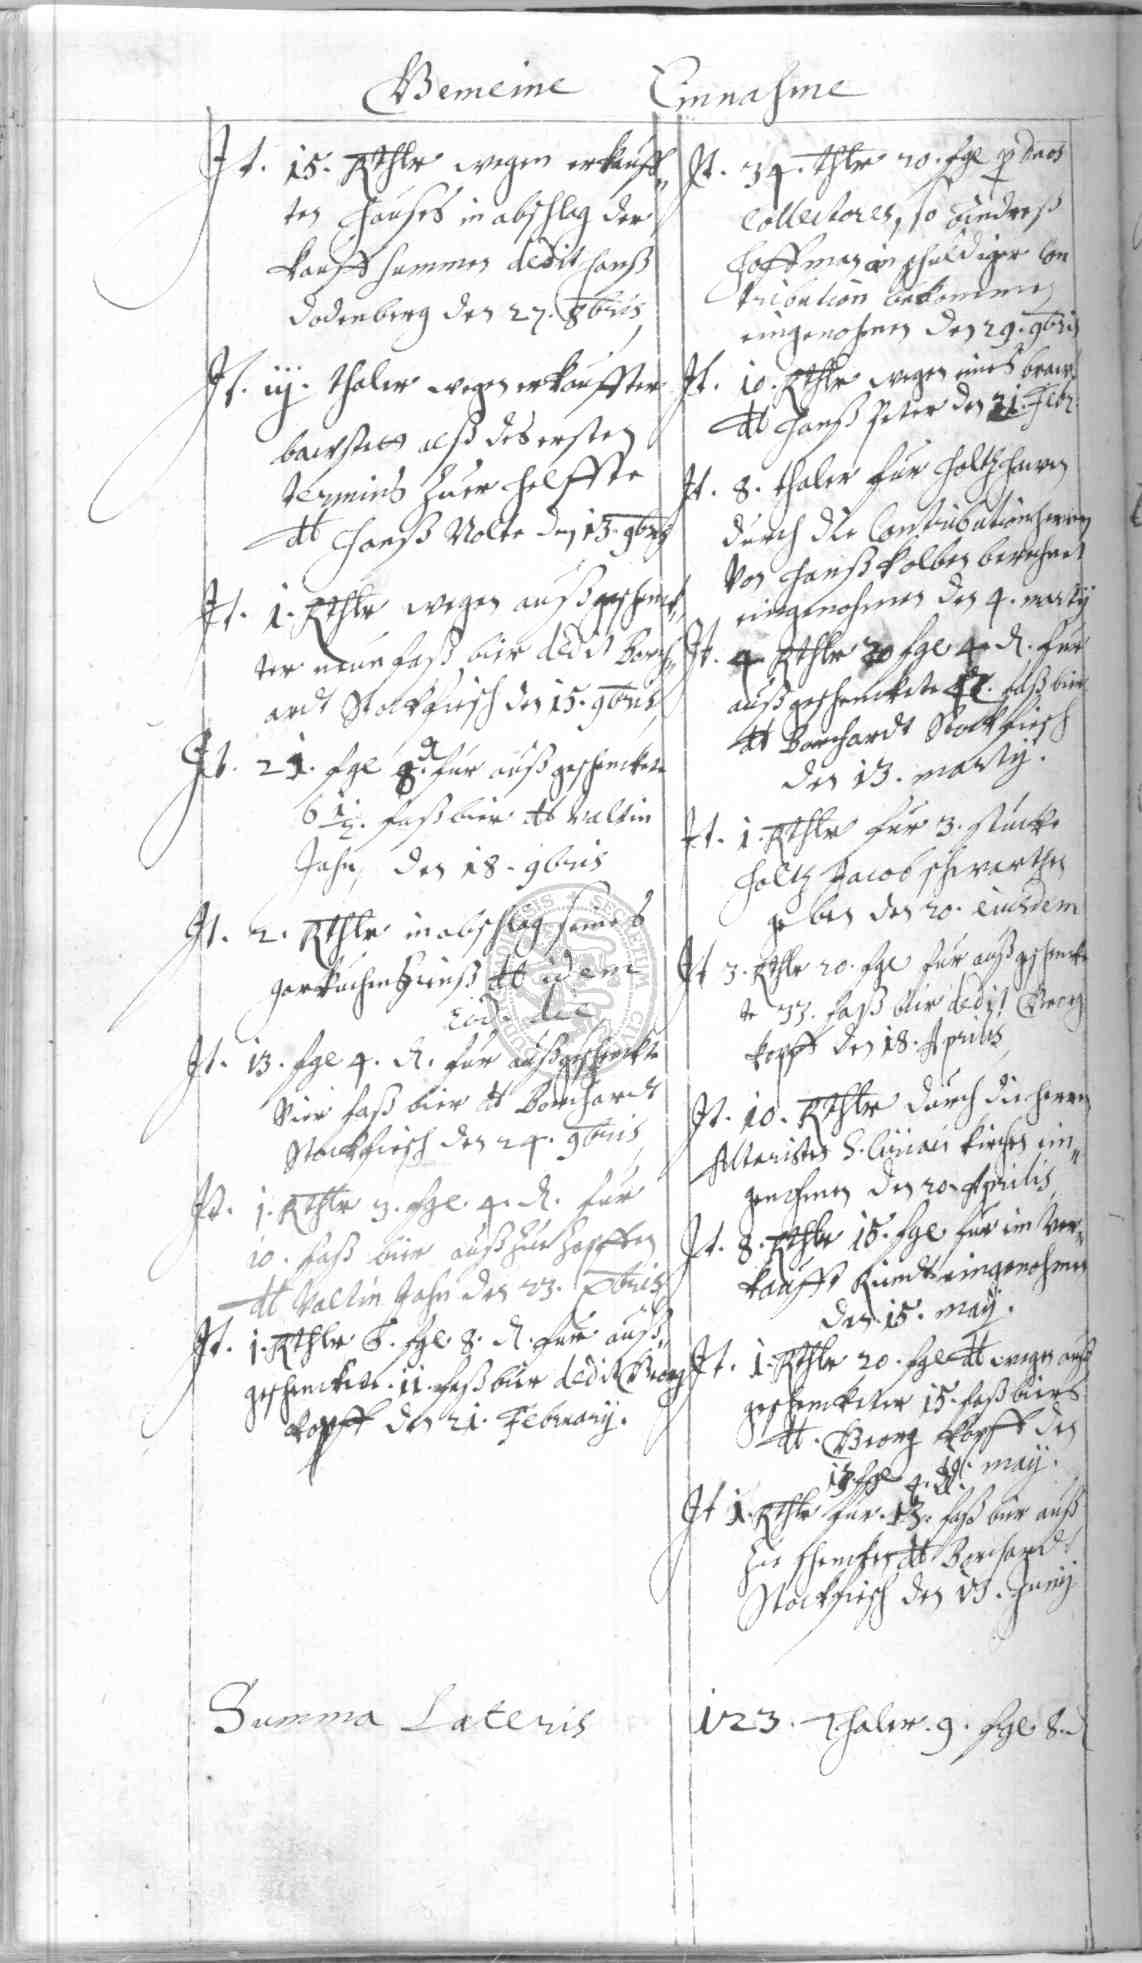 Gemeine Einnahme
It. 15. Rthlr wegen erkauff„
ten Hauses in abschlag der
kauff summen dedit Hanß
Dodenberg den 27. 8bris
It. iij. thaler wegen erkauffter
alß des ersten
termins zuer helffte
dt Hanß Nolte den 13. 9bris
It. 1. Rthlr wegen außgeschenck„
ter neun faß bier dedit Borch„
ardt Stockfisch den 15. 9bris
It. 21. sgl 8. d für außgeschenckete
6 1/2. faß bier dt Valtin
Jahn, den 18. 9bris
It. 2. Rthlr in abschlag seines
garküchen Zinß dt idem
eod. die
It. 13. sgl 4. d. für außgeschenckte
Vier faß bier dt Borchardt
Stockfisch den 24. 9bris
It. 1. Rthlr 3. sgl 4. d. für
10. faß bier auß zue Zapffen
dt Valtin Jahn den 23. Xbris
It. 1. Rthlr 6. sgl 8. d. für auß„
geschenckete. 11. faß bier dedit Georg
Kopff den 21. February.
It. 34. thlr 20. sgl p duos
Collectores, so Andreß
Hoffman in schuldiger Con
tribution bekommen
eingenohmen den 29. 9bris
It. 10. Rthlr wegen eines
dt Hanß Peter den 21. Febr.
It. 8. thaler für
durch die Contributionherren
Von Hanß Kolben berechnet
eingenohmen den 4. martij
It. 4. Rthlr 20 sgl 4. d. für
außgeschenckete 42. faß bier
dt Borchardt Stockfisch
den 13. martij.
It. 1. Rthlr für 3. stücke
Holtz Jacob Schwarthen
geben den 20. eiusdem
It 3. Rthlr 20. sgl für außgeschenck
te 33. faß bier dedit Georg
Kopff den 18. Aprilis
It. 10. Rthlr durch die Herren
Altaristen S. Ciriaci Kirchen ein„
genohmen den 20. Aprilis
It. 8. Rthlr 15. sgl für im Ver„
kaufft Rindt eingenohmen
den 15. maij.
It. 1. Rthlr 20. sgl dt wegen auß
geschenckter 15. faß biers
dt. Georg Kopff den
maij.
13. sgl 4. d.
It 1. Rthlr für. 13. faß bier auß
zue schencken dt Borchardt
Stockfisch den 13. Junij
Summa Lateris 123. Thaler. 9. sgl 8. d